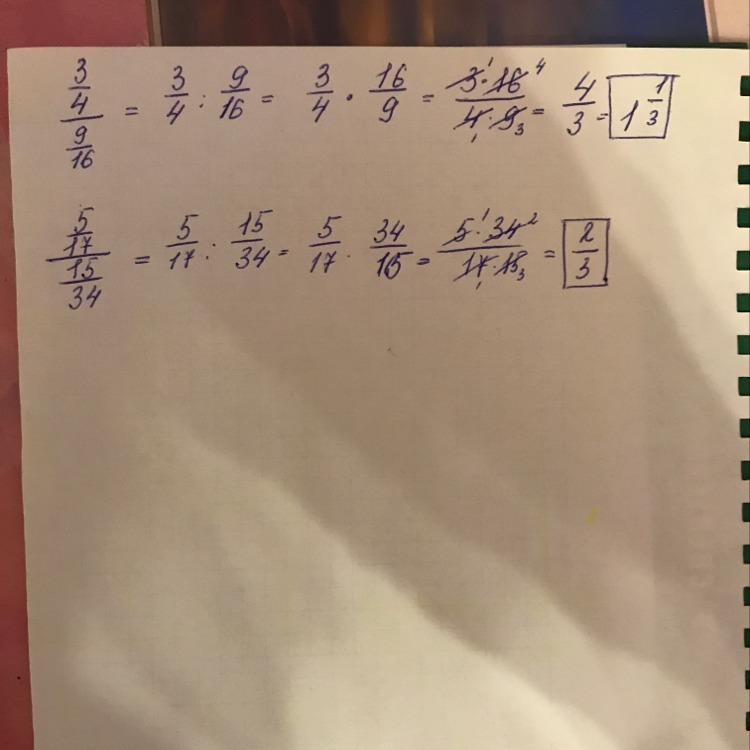 3/4 / 9/16 = 3/4 : 9/16 = 3/4 · 16/9 = 3¹·16⁴ / 4₁·9₃ = 4/3 = 1 1/3
5/17 / 15/34 = 5/17 : 15/34 = 5/17 · 34/15 = 5¹·34² / 17₁·15₃ = 2/3